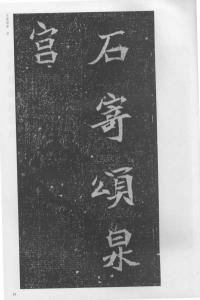 石寄頌泉
宫